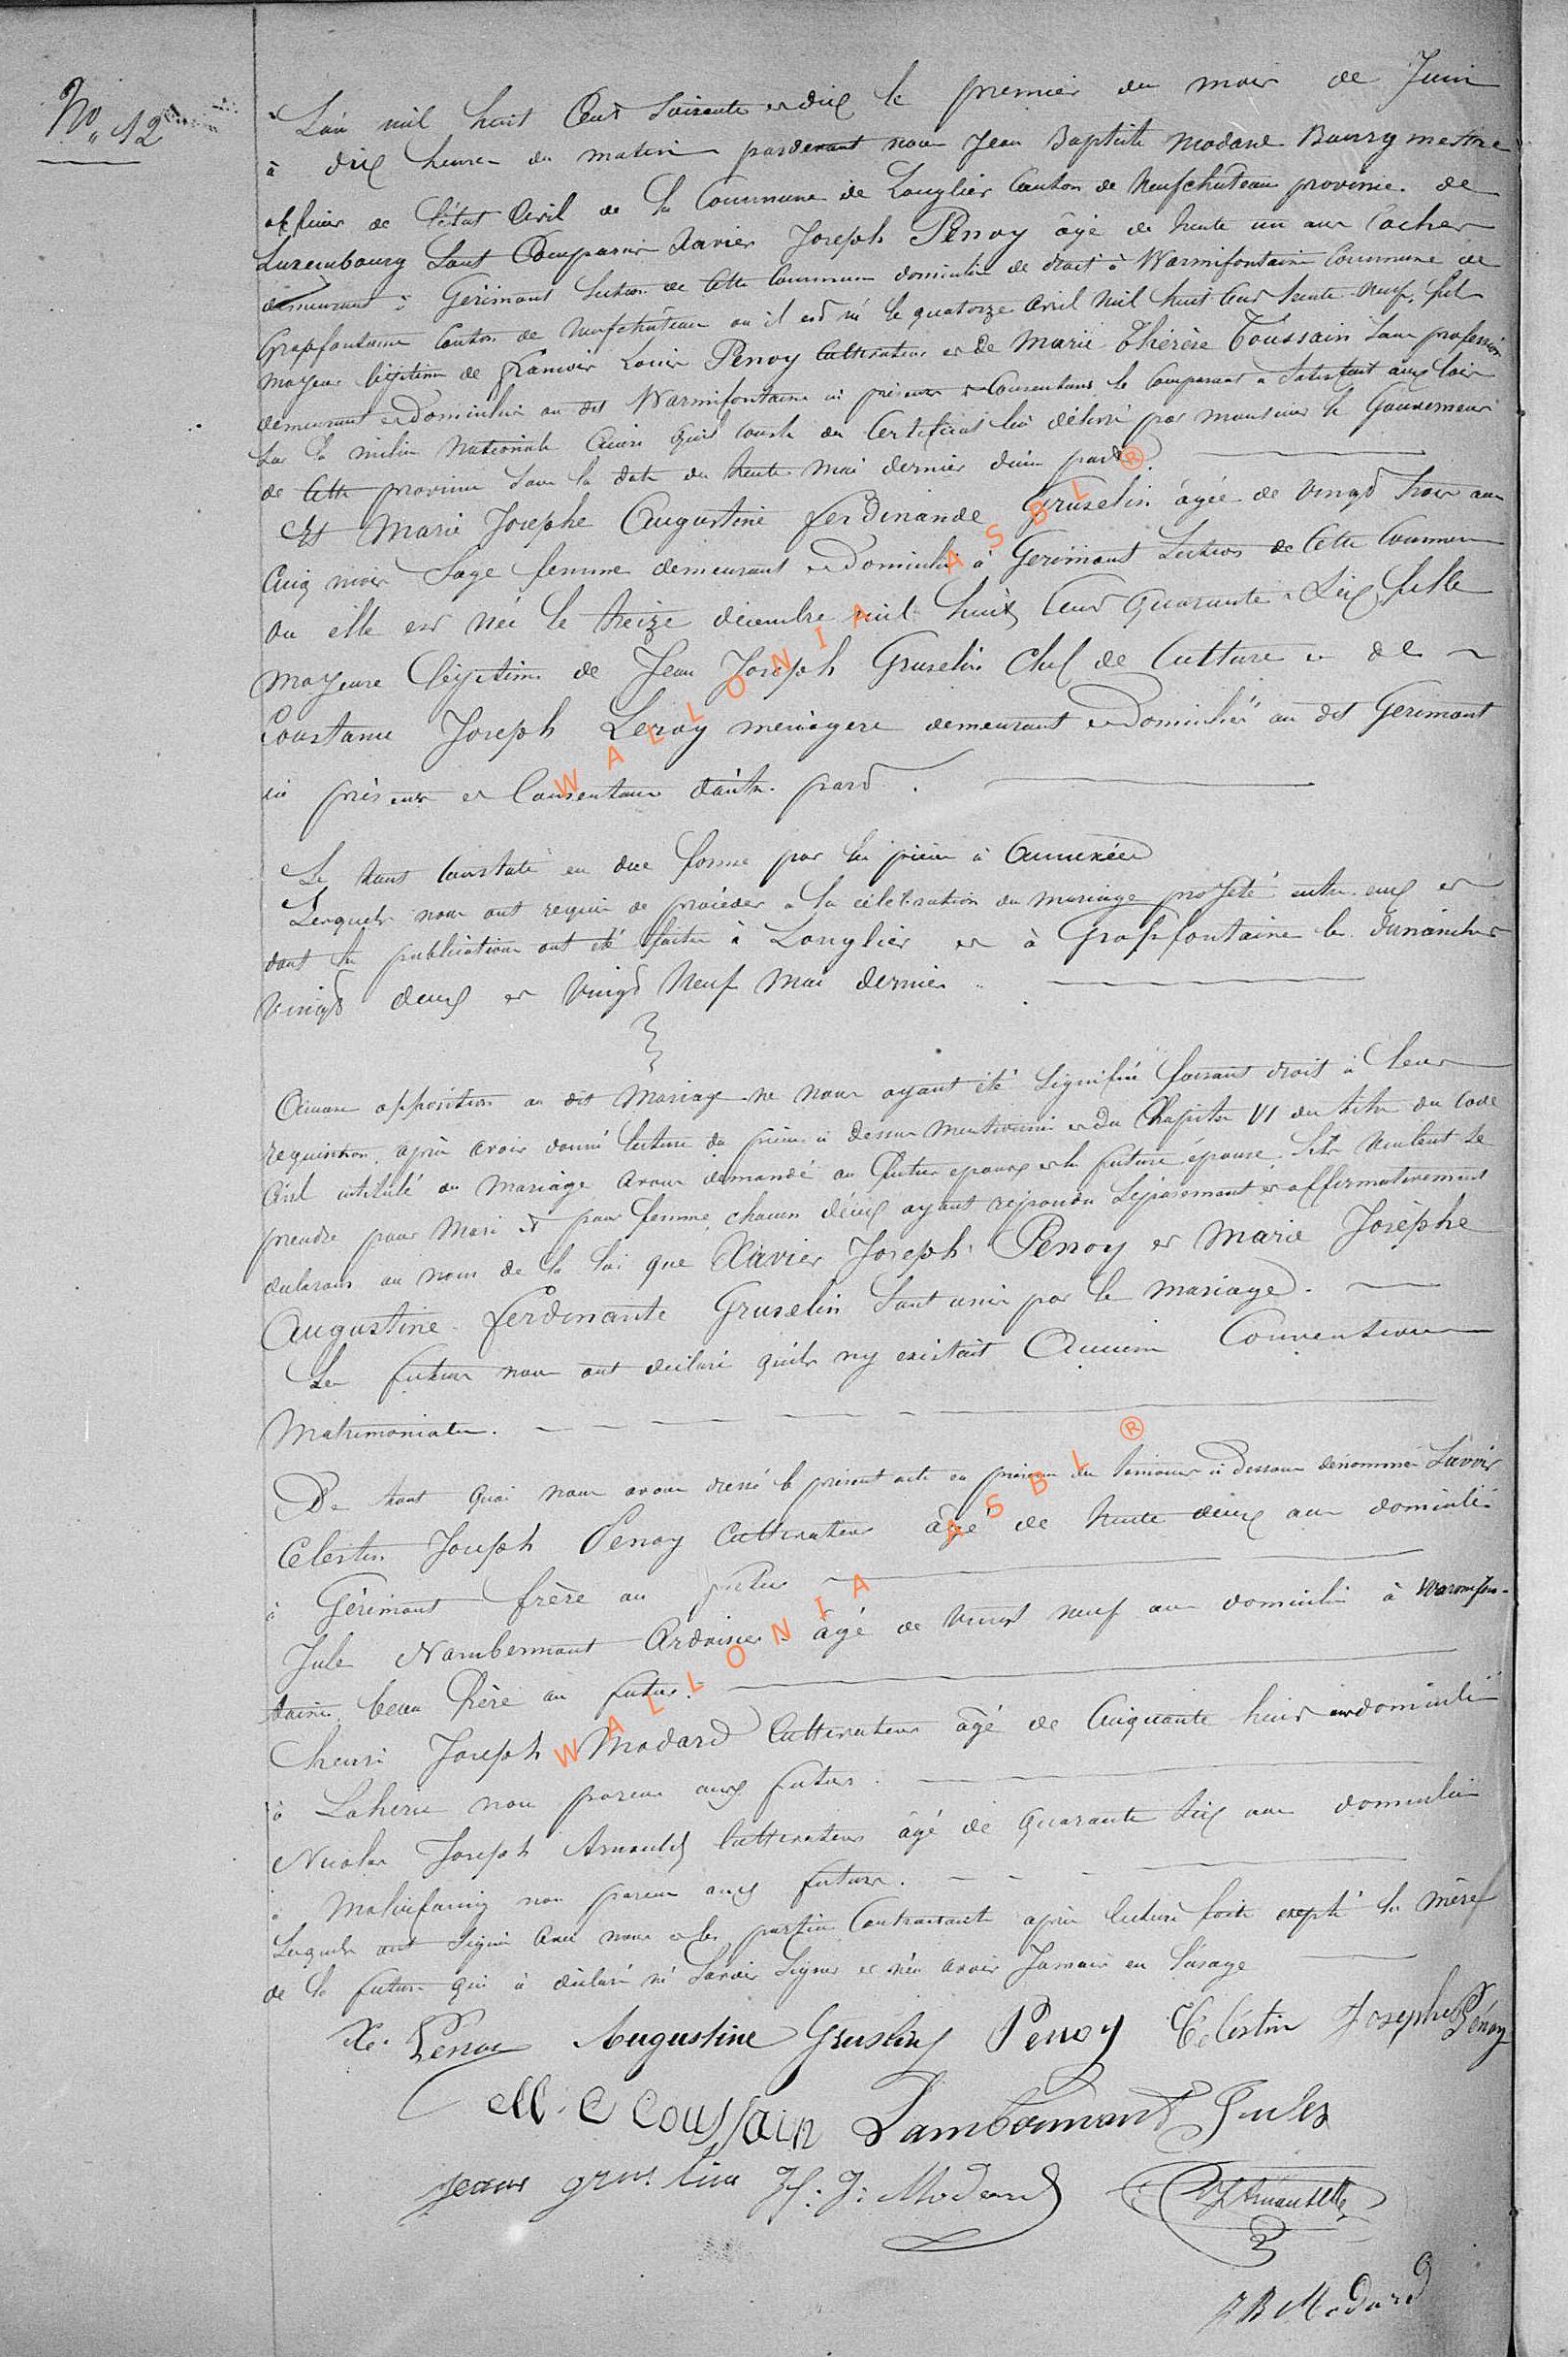 No 12
L'an mil huit Cent Soixante et dix le premier du mois de Juin
à dix heures du matin pardevant nous Jean Baptiste Modard Bourgmestre
officier de l'état Civil de la Commune de Longlier Canton de Neufchateau province de
Luxembourg Sont Comparus Xavier Joseph Penoy âgé de trente un ans Cocher
demeurant à Gérimont Section de Cette Commune domicilié de droit à Warmifontaine Commune de
Grapfontaine Canton de Neufchâteau où il est né le quatorze avril mil huit Cent trente neuf, fils
majeur légitime de François Louis Penoy Cultivateur et de Marie Thérèse Toussain Sans profession
demeurant et Domiciliés au dit Warmifontaine ici présents et Consentans le Comparant a Satisfait aux lois
Sur la milice Nationale Ainsi qu'il Conste du Certificat lui délivré par monsieur le Gouverneur
de Cette province Sous la date du trente mai dernier d'une part.
Et Marie Josephe Augustine ferdinande Gruselin âgée de vingt trois ans
Cinq mois Sage femme demeurant et Domiciliée à Gerimont Section de Cette Commune
ou elle est née le treize décembre mil huit Cent Quarante Six fille
majeure légitime de Jean Joseph Gruselin Chef de Culture et de
Constance Joseph Leroy ménagere demeurant et Domiciliés au dit Gerimont
ici présens et Consentans d'autre part.
Le tout Constaté en due forme par les pièces à Annexées
Lesquels nous ont requis de procéder a la célébration du mariage projeté entre eux et
dont les publications ont été faites à Longlier et à Grapfontaine les dimanches
vingt deux et vingt Neuf mai dernier.
Aucune opposition au dit Mariage ne nous ayant été Signifiée faisant droit à leur
requisition, après avoir donné lecture des pièces ci dessus mentionnées et du Chapitre VI du titre du Code
Civil intitulé du Mariage avons demandé au futur epoux et à la future épouse S'ils veulent Se
prendre pour Mari et pour femme, chacun d'eux ayant répondu Séparement et affirmativement
declarons au nom de la loi que Xavier Joseph Penoy et Marie Josèphe
Augustine Ferdinante Gruselin Sont unis par le mariage.
Les futurs nous ont déclaré qu'ils ny existait Aucune Conventions
Matrimoniales.
De tout quoi nous avons dressé le présent acte en présence des témoins ci Dessous dénommés Savoir
Celestin Joseph Penoy Cultivateur âgé de trente deux ans domicilié
à Gérimont frère au futur
Jule Nambermont Ardoisier âgé de vingt neuf ans domicilié à Warmifon-
taine, beau frère au futur.
henri Joseph Modard Cultivateur âgé de Cinquante huit ans domicilié
à Laherie non parens aux futurs.
Nicolas Joseph Arnould Cultivateur âgé de Quarante Six ans domicilié
à Molinfaing non parens aux futurs.
Lesquels ont Signé Avec nous et les parties Contractante après lecture faite excepté la mère
de la future qui à déclaré ne Savoir Signer et n'en avoir Jamais eu l'usage
X. Penoy Augustine Gruselin Penoy Celestin Josephe Pénoy
M. C Toussain Lambermont Jules
H. J. Modard
J B Modard
WALLONIA ASBL ®
WALLONIA ASBL ®